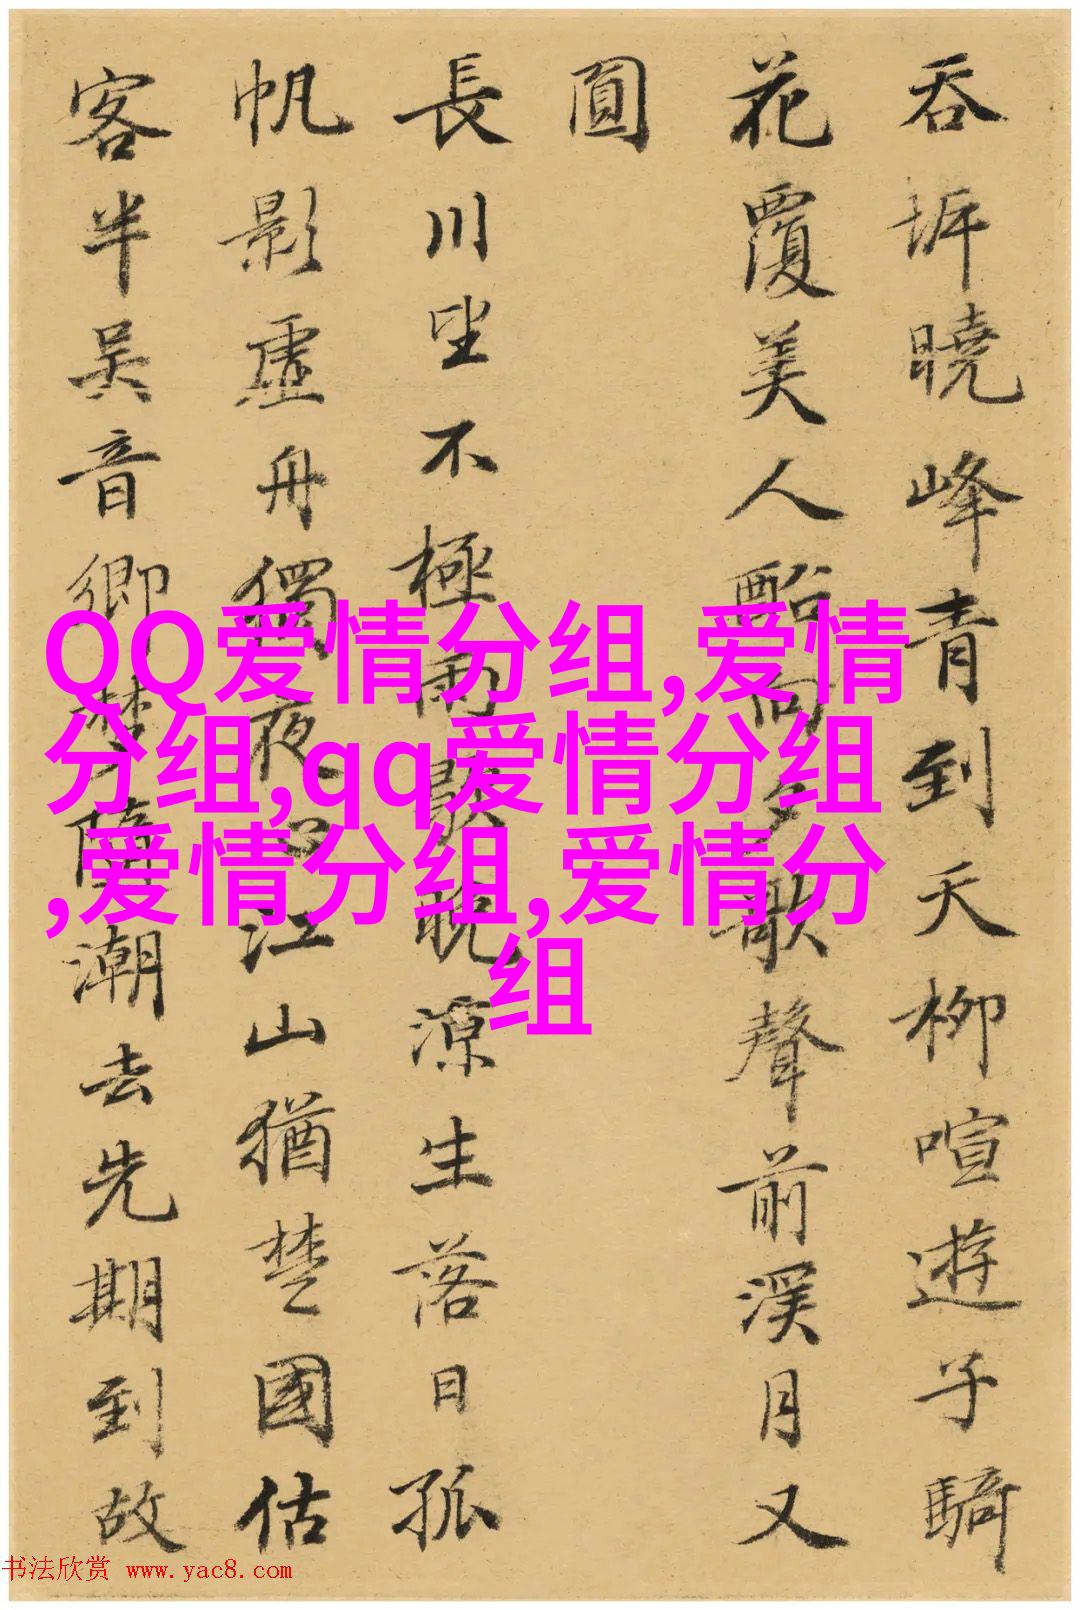 吞坼曉峰青到天柳喧遊子騎
花覆美人酡向夕歌聲前溪月又
圓
長川坐不極雨歇晚涼生落日孤
帆影虛舟獨夜心江山猶楚國估
客半吴音
卿
蘭潮去先期到故
QQ爱情分组,爱情
分组,qq爱情分组
,爱情分组,爱情分
组
书法欣赏 www.yac8.com